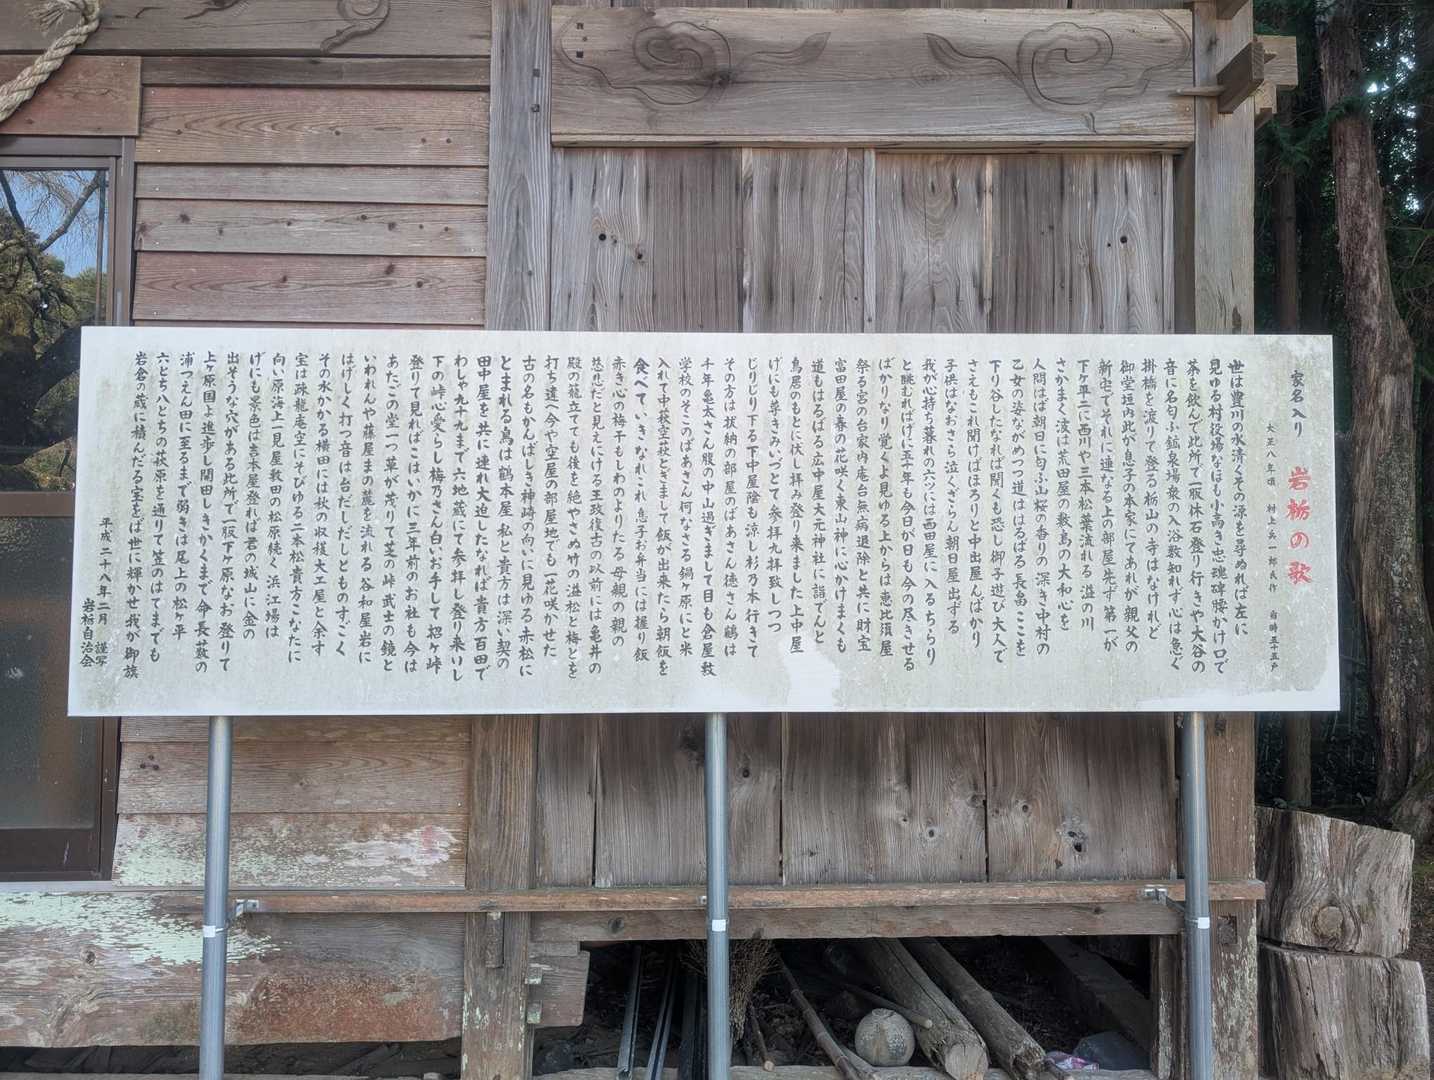 家名入り
岩栃の歌
大正八年頃 村上兵一郎氏作 当時五十五戸
世は豊川の水清くその源を尋ぬれば左に
見ゆる村役場なほも小高き忠魂碑腰かけ口で
茶を飲んで此所で一服休石登り行きや大谷の
音に名匂ふ鉱泉場衆の入浴数知れず心は急ぐ
掛橋を渡りて登る栃山の寺はなけれど
御堂垣内此が息子の本家にてあれが親父の
新宅でそれに連なる上の部屋先ず第一が
下ヶ平二に西川や三本松葉流れる溢の川
さかまく濱は荒田屋の数鳥の大和心を
人問はば朝日に匂ふ山桜の香りの深き中村の
乙女の姿ながめつつ道ははるばる長畠ここを
下り谷したなれば聞くも恐し御子遊び大人で
さえもこれ聞けばほろりと中出屋んばかり
子供はなおさら泣くぎらん朝日屋出ずる
我が心持ち暮れの六ツには西田屋に入るちらり
と眺むればげに五十年も今日が日も今の尽きせる
ばかりなり覚くよ見ゆる上からは恵比須屋
祭る宮の台家内庵台無病退除と共に財宝
富田屋の春の花咲く東山神に心かけまくも
道もはるばる広中屋大元神社に詣でんと
鳥居のもとに伏し拝み登り来ました上中屋
げにも尊きみいづとて参拝九拝致しつつ
じりじり下る下中屋陰も涼し杉乃本行きて
その方は拔納の部屋のばあさん徳さん鶴は
千年亀太さん腹の中山過ぎまして目も倉屋敷
学校のそこのばあさん何なさる鍋ヶ原にと米
入れて中萩空萩とぎまして飯が出来たら朝飯を
食べていきなれこれ息子お弁当には握り飯
赤き心の梅干もしわのよりたる母親の親の
慈悲だと見えにける王政復古の以前には亀井の
殿の籠立てても後を絶やさぬ竹の溢松と梅とを
打ち連へ今や空屋の部屋地でも一花咲かせた
古の名もかんばしき神崎の向いに見ゆる赤松に
とまれる鳥は鶴本屋私と貴方は深い契の
田中屋を共に連れ大迫したなれば貴方百田で
わしゃ九十九まで六地蔵にて参拝し登り来いし
下の峠心愛らし梅乃さん白いお手して招ヶ峠
登りて見ればこはいかに三年前のお社も今は
あたごの堂一つ草が茂りて芝の峠武士の鏡と
いわれんや藤屋まの麓を流れる谷和屋岩に
はげしく打つ音は台だしだしとものすごく
その水かかる横田には秋の収穫大工屋と余す
宝は疎龍庵空にそびゆる二本松貴方こなたに
向い原海上一見屋敷田の松原続く浜江場は
げにも景色は吉本屋登れば君の城山に金の
出そうな穴がある此所で一服下ヶ原なお登りて
上ヶ原国よ進歩し開田しきかくまで命長薮の
浦つえん田に至るまで弱きは尾上の松ヶ平
六どち八とちの萩原を通りて笠のはてまでも
岩倉の蔵に積んだる宝をば世に輝かせ我が御旗
平成二十八年二月 謹写
岩栃自治会